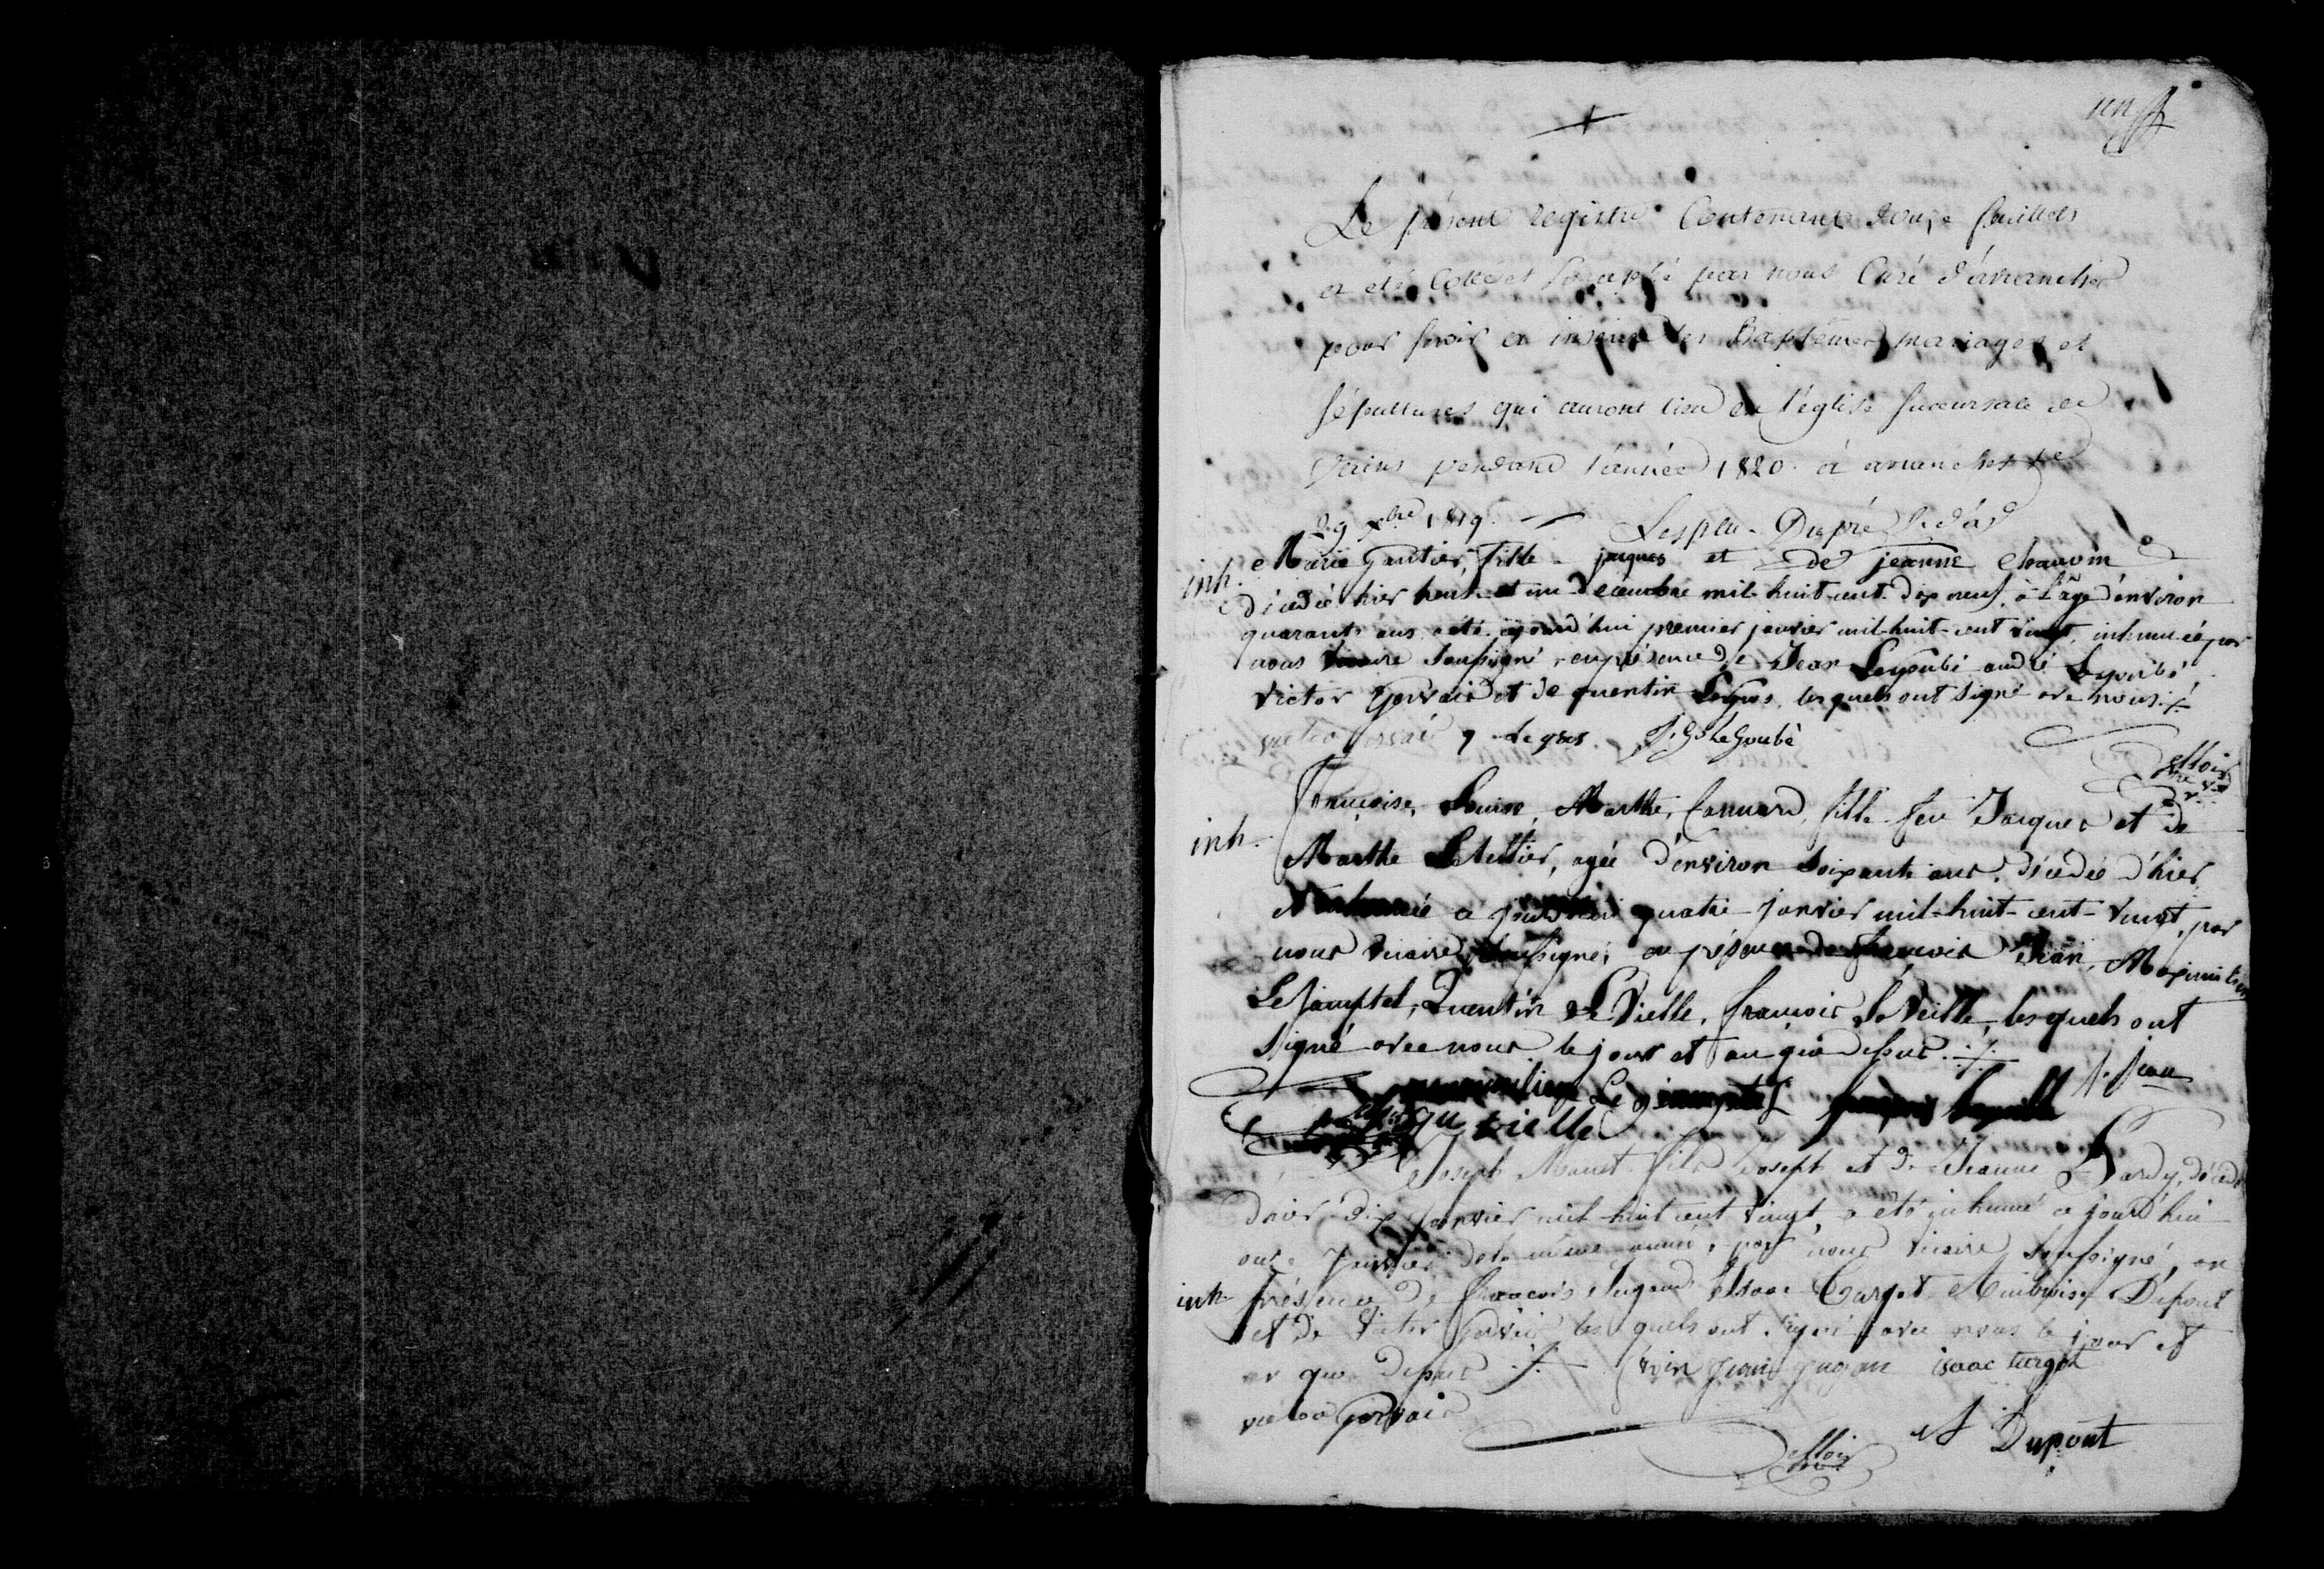 un
Le présent registre Contenant douze feuillets
a été Coté et Paraphé par nous Curé d'avranches
pour servir a inscrire les Baptêmes mariages et
sépultures qui auront lieu en l'église succursale de
Vains pendant l'année 1820. à avranches le
29 xbre 1819. Lesplu-Dupré
inh. Marie Gautier, fille jaques et de jeanne Chauvin
décédée hier trente et un décembre mil huit cent dix neuf, à l'âge d'environ
quarante ans, a été ajourd'hui premier janvier mil-huit-cent vingt, inhumée par
nous vicaire soussigné, en présence de Jean Legoubé andré Legoubé,
Victor Gervais et de quentin Legros, lesquels ont signé avec nous ./.
victor gervais q Legros J. Legoubé
inh. Françoise, Louise, Marthe, Canuard, fille feu Jacques et de
Marthe Letellier, agée d'environ soixante ans, décédée d'hier,
et inhumée ce jourd'hui quatre janvier mil-huit-cent-vingt, par
nous vicaire soussigné, en présence de françois Jean, Maximilien
Lejamptel, Quentin LeVielle, françois LeVeille, lesquels ont
signé avec nous le jour et an que dessus ./.
f. jean
maximilien Lejamptel
qu vielle
Joseph Manet fils Joseph et de Jeanne Hardy, décédé
d'hier dix janvier mil-huit cent vingt, a été inhumé ce jourd'hui
onze janvier de la même année, par nous vicaire soussigné, en
inh présence de françois Jugand Isaac Turgot Ambroise Dupont
et de Victor Gervais lesquels ont signé avec nous le jour et
an que dessus ./. jean jugan isaac turgot
victor gervais
A Dupont